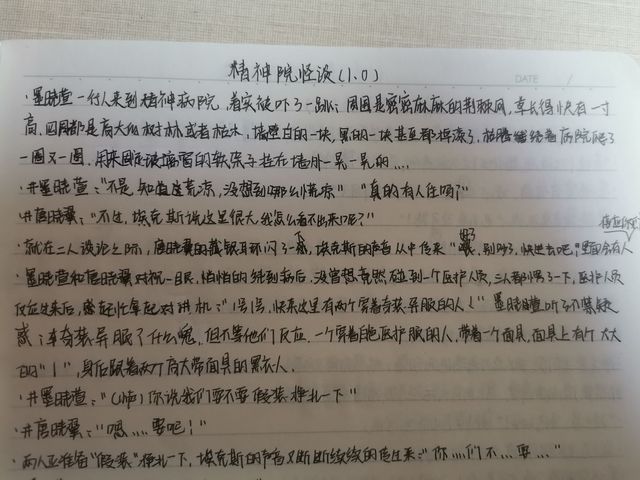 精神院怪谈(1.0)
DATE /
·墨晓萱一行人来到精神病院,着实被吓了一跳:周围是密密麻麻的荆棘网,草长得快有一寸
高,四周都是高大的树林或者枯木,墙壁白的一块,黑的一块甚至都掉漆了,围着病院
一圈又一圈,用来固定玻璃窗的软条子挂在墙外一晃一晃的....
·#墨晓萱:“不是,知道这荒凉,没想到那么荒凉” “真的有人住吗?”
·#唐晓翼:“不过,埃克斯说这里很大,我怎么看不出来呢?”
·就在二人谈论之际,唐晓翼的戴银耳环闪了一下,埃克斯的声音从中传来“好了,别吵了,快进去吧,里面会有人
·墨晓萱和唐晓翼对视一眼,悄悄的绕到病后,没曾想竟然碰到一个医护人员,三人都愣了一下,医护人员
反应过来后,赶忙拿起对讲机:“呼呼,快来这里有两个穿着奇装异服的人!”墨晓萱听了不禁疑
惑:这奇装异服了什么鬼,但不等他们反应,一个穿着医护服的人,带着一个面具,面具上有个大大
的“1”,身后跟着两个高大带面具的黑衣人.
·#墨晓萱:“(小声)你说我们要不要假装挣扎一下”
·#唐晓翼:“嗯....要吧!”
·两人正准备“假装”挣扎一下,埃克斯的声音又断断续续的传过来:“你....们不...要...”